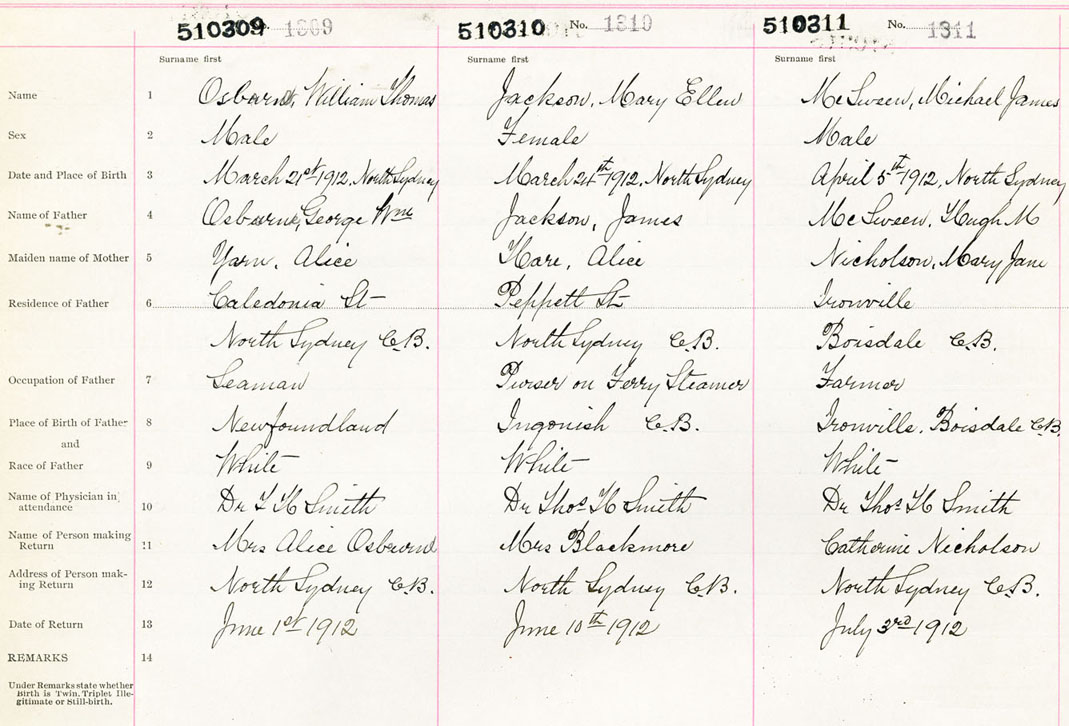 510309 No. 1309 510310 No. 1310 510311 No. 1311
Surname first Surname first Surname first
Name 1 Osburne, William Thomas Jackson, Mary Ellen McSween, Michael James
Sex 2 Male Female Male
Date and Place of Birth 3 March 21st 1912, North Sydney March 24th 1912, North Sydney April 5th 1912, North Sydney
Name of Father 4 Osburne, George Wm Jackson, James McSween, Hugh M
Maiden name of Mother 5 Yarn, Alice Hare, Alice Nicholson, Mary Jane
Residence of Father 6 Caledonia St Peppett St Ironville
North Sydney C.B. North Sydney C.B. Boisdale C.B.
Occupation of Father 7 Seaman Purser on Ferry Steamer Farmer
Place of Birth of Father 8 Newfoundland Ingonish C.B. Ironville, Boisdale C.B.
and
Race of Father 9 White White White
Name of Physician in
attendance 10 Dr T H Smith Dr Thos H Smith Dr Thos H Smith
Name of Person making
Return 11 Mrs Alice Osburne Mrs Blackmore Catherine Nicholson
Address of Person mak-
ing Return 12 North Sydney C.B. North Sydney C.B. North Sydney C.B.
Date of Return 13 June 1st 1912 June 10th 1912 July 3rd 1912
REMARKS 14
Under Remarks state whether
Birth is Twin, Triplet Ille-
gitimate or Still-birth.